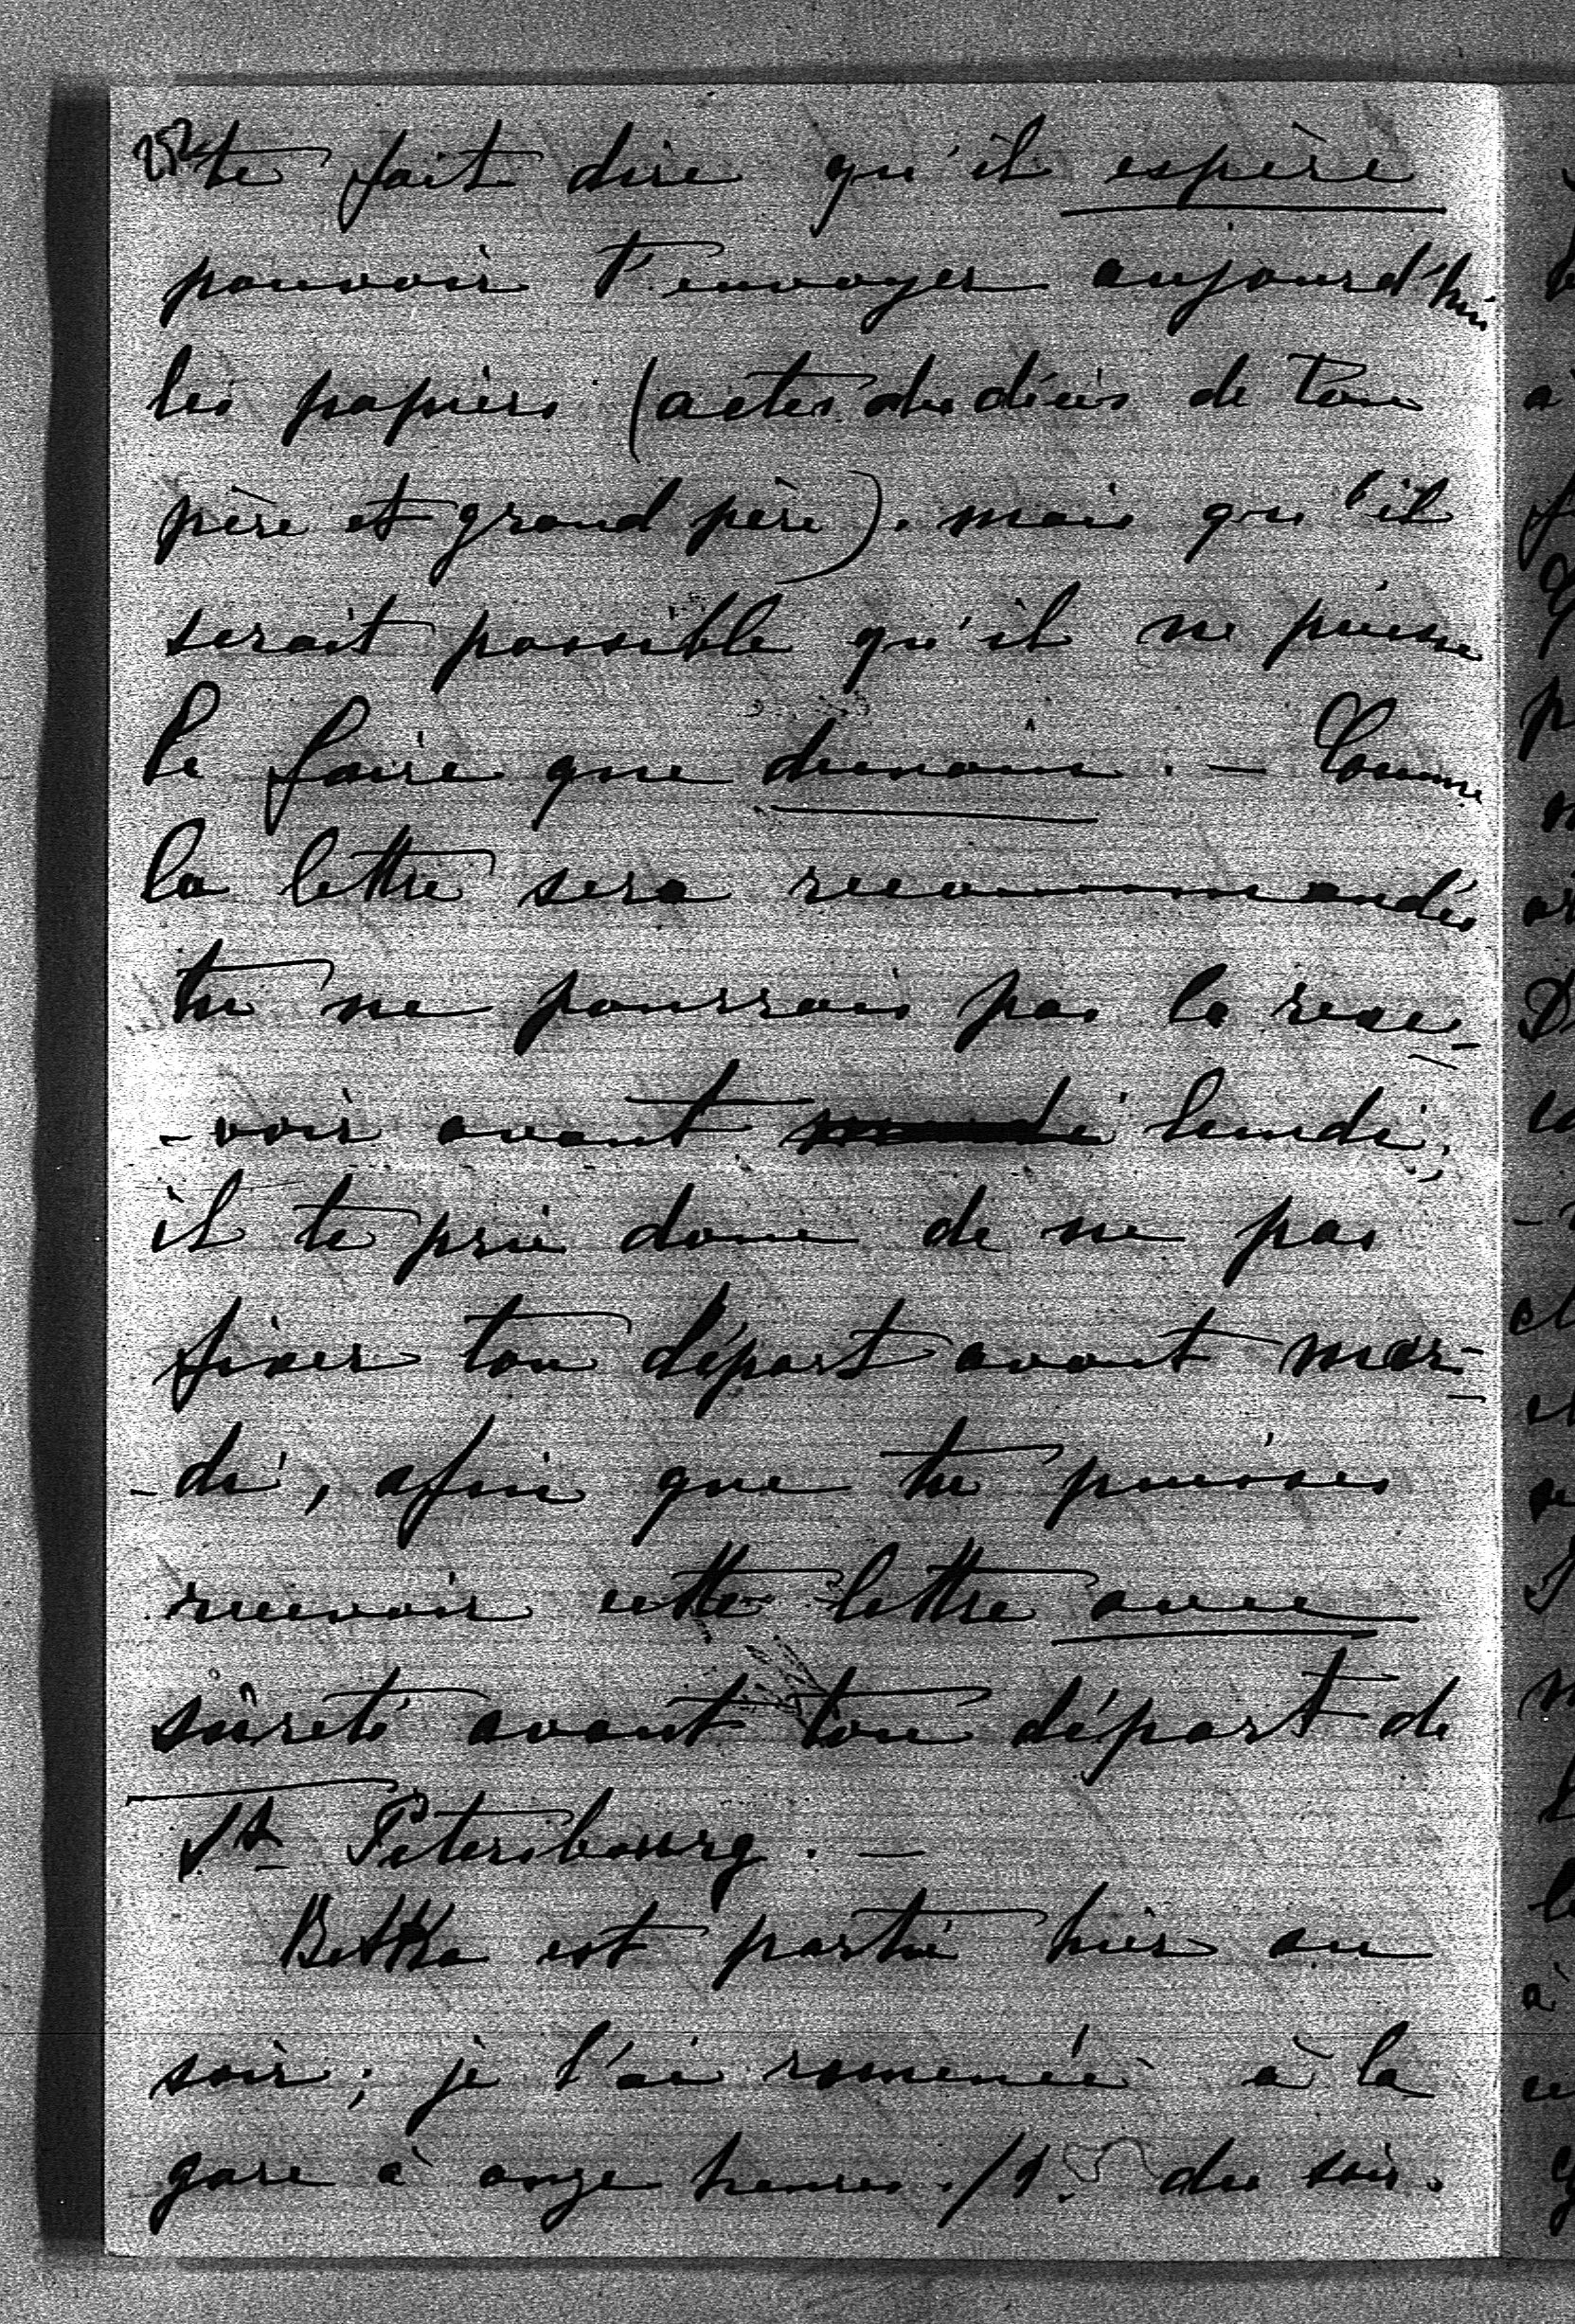 te fait dire qu'il espère
pouvoir t'envoyer aujourd'hui
les papiers (actes du décès de ton
père et grand père). mais qu'il
serait possible qu'il ne puisse
le faire que demain. — Comme
la lettre sera recommandée
tu ne pourrais pas la rece-
-voir avant lundi;
il te prie donc de ne pas
fixer ton départ avant mar-
-di, afin que tu puisses
recevoir cette lettre avec
sûreté avant ton départ de
St Petersbourg. —
Betka est partie hier au
soir; je l'ai ramenée à la
gare à onze heures du soir.